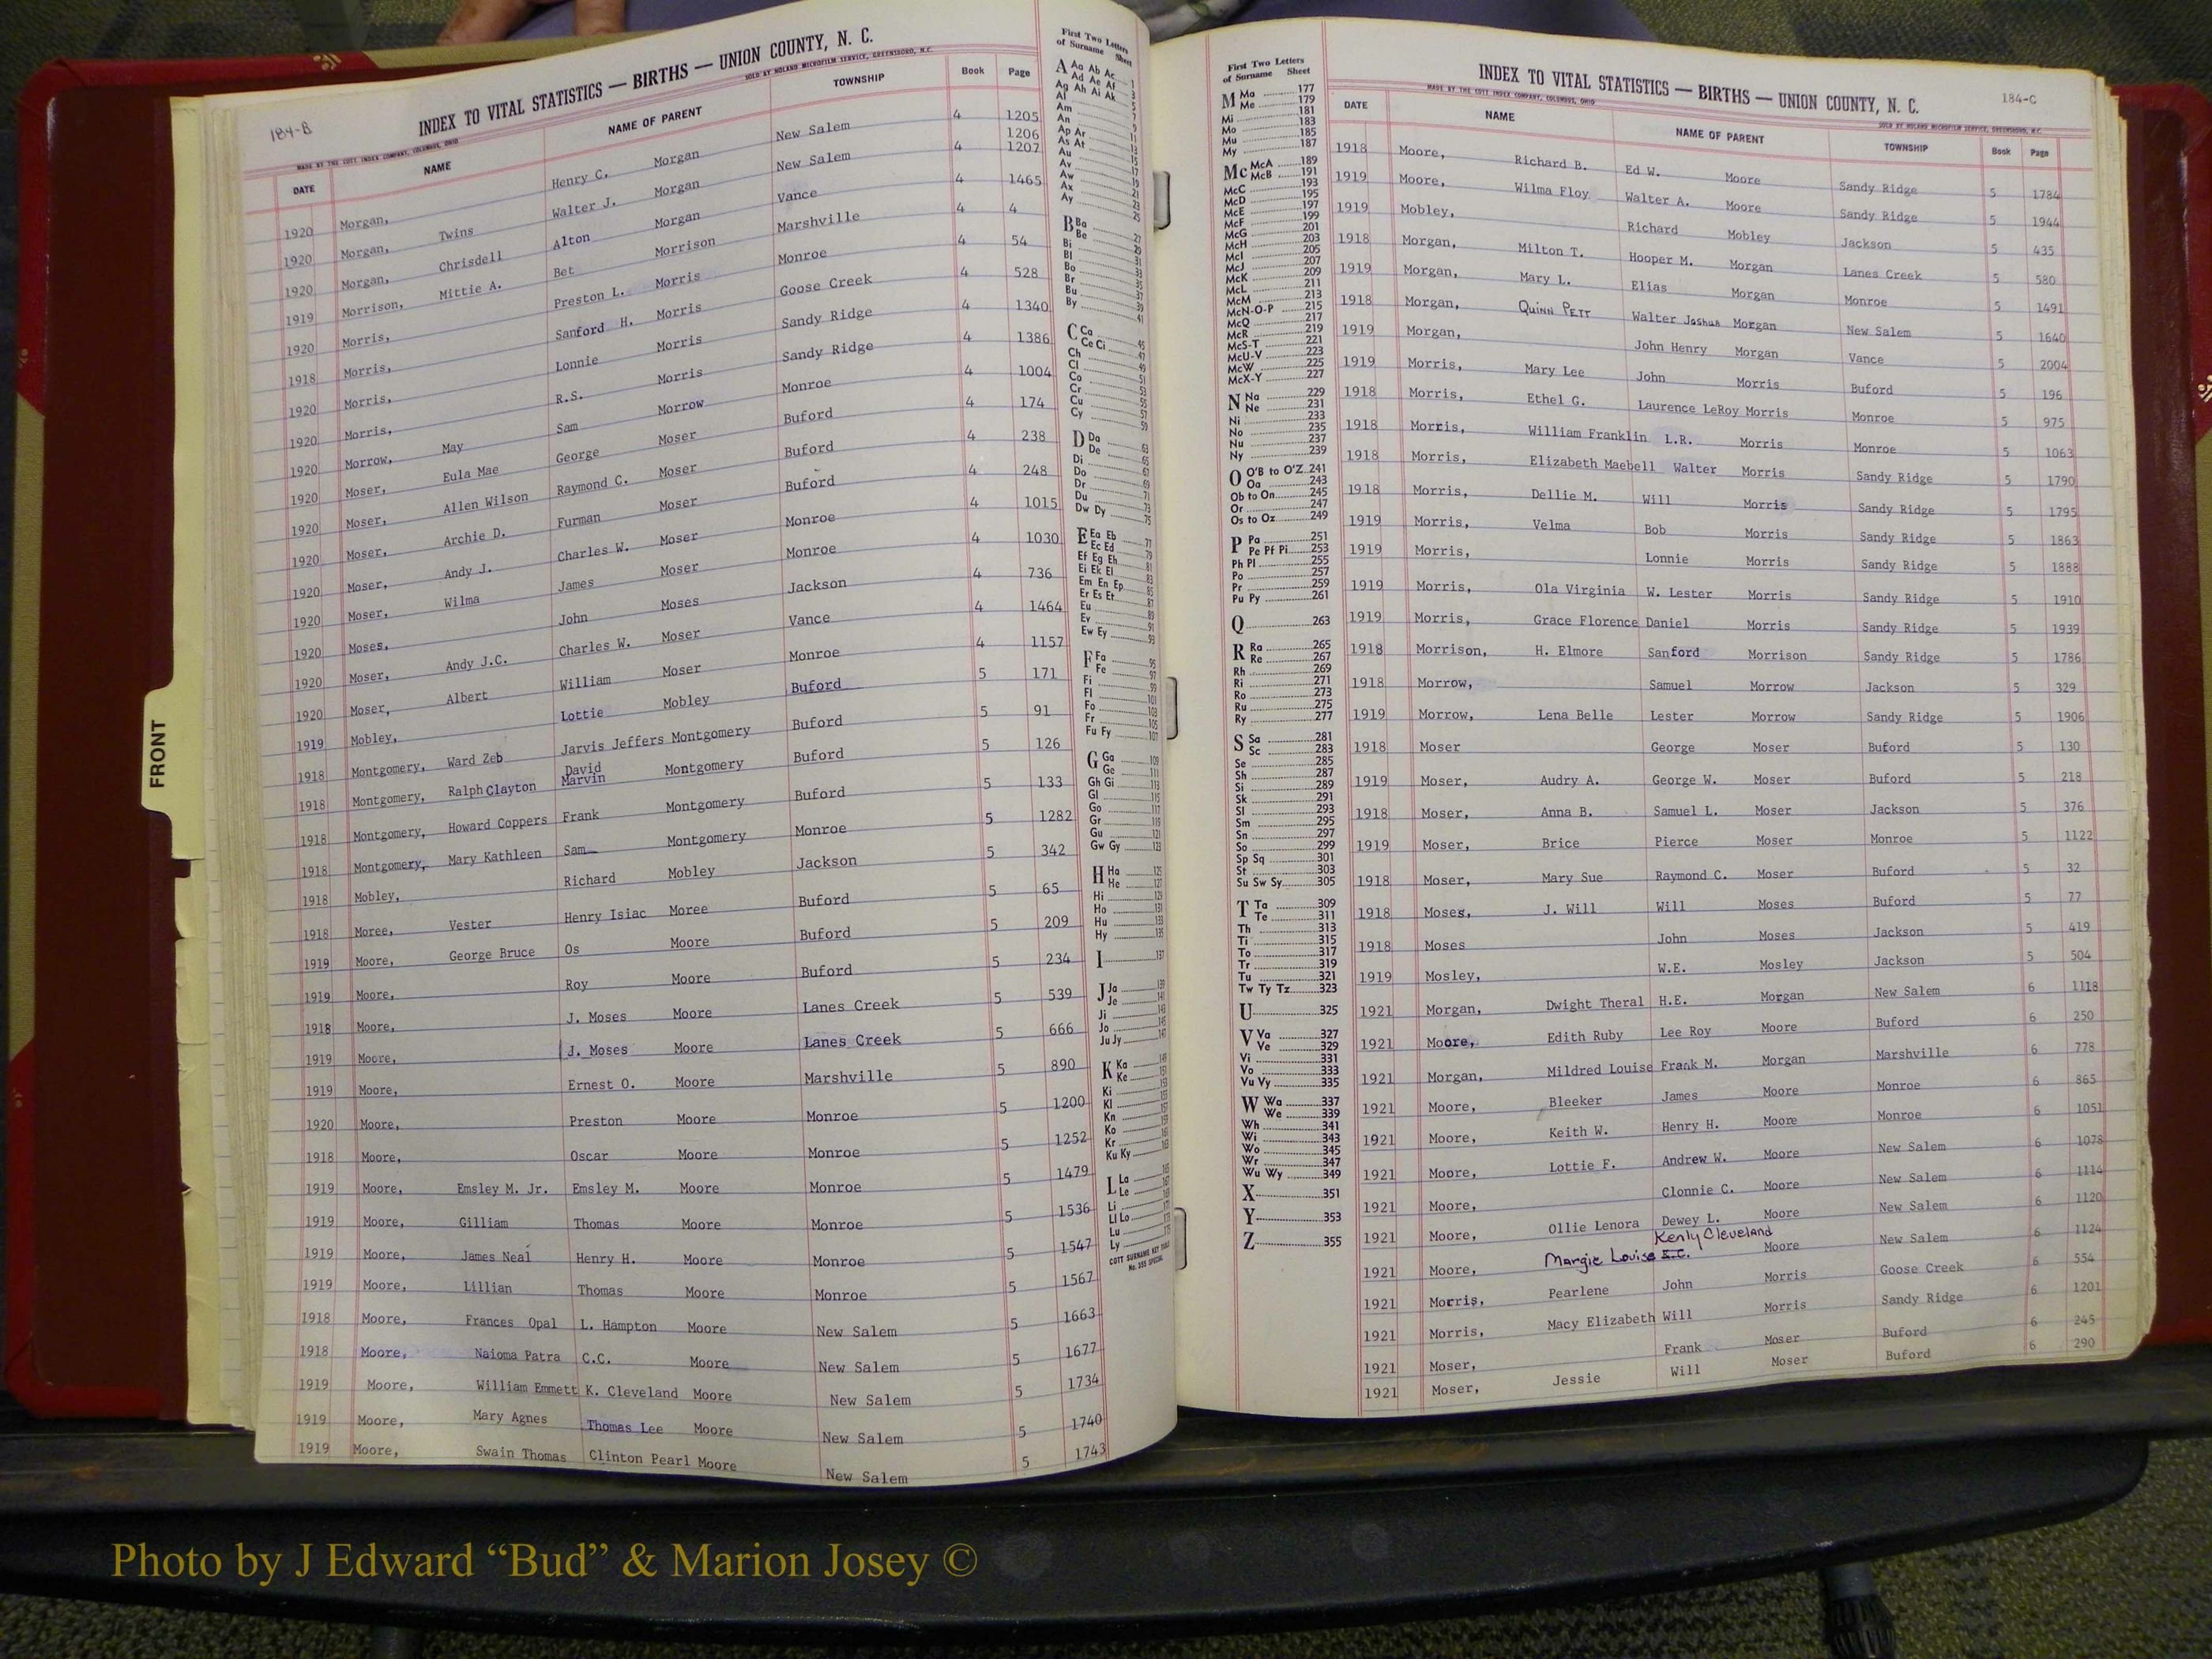 184-B
INDEX TO VITAL STATISTICS — BIRTHS — UNION COUNTY, N. C.
MADE BY THE COTT INDEX COMPANY, COLUMBUS, OHIO SOLD BY NOLAND MICROFILM SERVICE, GREENSBORO, N.C.
DATE NAME NAME OF PARENT TOWNSHIP Book Page
1920 Morgan, Henry C. Morgan New Salem 4 1205
1920 Morgan, Twins Walter J. Morgan New Salem 4 1206 1207
1920 Morgan, Chrisdell Alton Morgan Vance 4 1465
1919 Morrison, Mittie A. Bet Morrison Marshville 4 4
1920 Morris, Preston L. Morris Monroe 4 54
1918 Morris, Sanford H. Morris Goose Creek 4 528
1920 Morris, Lonnie Morris Sandy Ridge 4 1340
1920 Morris, R.S. Morris Sandy Ridge 4 1386
1920 Morrow, May Sam Morrow Monroe 4 1004
1920 Moser, Eula Mae George Moser Buford 4 174
1920 Moser, Allen Wilson Raymond C. Moser Buford 4 238
1920 Moser, Archie D. Furman Moser Buford 4 248
1920 Moser, Andy J. Charles W. Moser Monroe 4 1015
1920 Moser, Wilma James Moser Monroe 4 1030
1920 Moses, John Moses Jackson 4 736
1920 Moser, Andy J.C. Charles W. Moser Vance 4 1464
1920 Moser, Albert William Moser Monroe 4 1157
1919 Mobley, Lottie Mobley Buford 5 171
1918 Montgomery, Ward Zeb Jarvis Jeffers Montgomery Buford 5 91
1918 Montgomery, Ralph Clayton David Marvin Montgomery Buford 5 126
1918 Montgomery, Howard Coppers Frank Montgomery Buford 5 133
1918 Montgomery, Mary Kathleen Sam Montgomery Monroe 5 1282
1918 Mobley, Richard Mobley Jackson 5 342
1918 Moree, Vester Henry Isiac Moree Buford 5 65
1919 Moore, George Bruce Os Moore Buford 5 209
1919 Moore, Roy Moore Buford 5 234
1918 Moore, J. Moses Moore Lanes Creek 5 539
1919 Moore, J. Moses Moore Lanes Creek 5 666
1919 Moore, Ernest O. Moore Marshville 5 890
1920 Moore, Preston Moore Monroe 5 1200
1918 Moore, Oscar Moore Monroe 5 1252
1919 Moore, Emsley M. Jr. Emsley M. Moore Monroe 5 1479
1919 Moore, Gilliam Thomas Moore Monroe 5 1536
1919 Moore, James Neal Henry H. Moore Monroe 5 1547
1919 Moore, Lillian Thomas Moore Monroe 5 1567
1918 Moore, Frances Opal L. Hampton Moore New Salem 5 1663
1918 Moore, Naioma Patra C.C. Moore New Salem 5 1677
1919 Moore, William Emmett K. Cleveland Moore New Salem 5 1734
1919 Moore, Mary Agnes Thomas Lee Moore New Salem 5 1740
1919 Moore, Swain Thomas Clinton Pearl Moore New Salem 5 1743
FRONT
First Two Letters
of Surname Sheet
A Aa Ab Ac 1
Ad Ae Af 3
Ag Ah Ai Ak 5
Al 7
Am 9
An 11
Ap Ar 13
As At 15
Au 17
Av 19
Aw 21
Ax 23
Ay 25
B Ba 27
Be 29
Bi 31
Bl 33
Bo 35
Br 37
Bu 39
By 41
C Ca 45
Ce Ci 47
Ch 49
Cl 51
Co 53
Cr 55
Cu 57
Cy 59
D Da 63
De 65
Di 67
Do 69
Dr 71
Du 73
Dw Dy 75
E Ea Eb 77
Ec Ed 79
Ef Eg Eh 81
Ei Ek El 83
Em En Ep 85
Er Es Et 87
Eu 89
Ev 91
Ew Ey 93
F Fa 95
Fe 97
Fi 99
Fl 101
Fo 103
Fr 105
Fu Fy 107
G Ga 109
Ge 111
Gh Gi 113
Gl 115
Go 117
Gr 119
Gu 121
Gw Gy 123
H Ha 125
He 127
Hi 129
Ho 131
Hu 133
Hy 135
I 137
J Ja 139
Je 141
Ji 143
Jo 145
Ju Jy 147
K Ka 149
Ke 151
Ki 153
Kl 155
Kn 157
Ko 159
Kr 161
Ku Ky 163
L La 165
Le 167
Li 169
Ll Lo 171
Lu 173
Ly 175
COTT SURNAME KEY TABLE
No. 355 SPECIAL
First Two Letters
of Surname Sheet
M Ma 177
Me 179
Mi 181
Mo 183
Mu 185
My 187
Mc McA 189
McB 191
McC 193
McD 195
McE 197
McF 199
McG 201
McH 203
McI 205
McJ 207
McK 209
McL 211
McM 213
McN-O-P 215
McQ 217
McR 219
McS-T 221
McU-V 223
McW 225
McX-Y 227
N Na 229
Ne 231
Ni 233
No 235
Nu 237
Ny 239
O O'B to O'Z 241
Oa 243
Ob to On 245
Or 247
Os to Oz 249
P Pa 251
Pe Pf Pi 253
Ph Pl 255
Po 257
Pr 259
Pu Py 261
Q 263
R Ra 265
Re 267
Rh 269
Ri 271
Ro 273
Ru 275
Ry 277
S Sa 281
Sc 283
Se 285
Sh 287
Si 289
Sk 291
Sl 293
Sm 295
Sn 297
So 299
Sp Sq 301
St 303
Su Sw Sy 305
T Ta 309
Te 311
Th 313
Ti 315
To 317
Tr 319
Tu 321
Tw Ty Tz 323
U 325
V Va 327
Ve 329
Vi 331
Vo 333
Vu Vy 335
W Wa 337
We 339
Wh 341
Wi 343
Wo 345
Wr 347
Wu Wy 349
X 351
Y 353
Z 355
184-C
INDEX TO VITAL STATISTICS — BIRTHS — UNION COUNTY, N. C.
MADE BY THE COTT INDEX COMPANY, COLUMBUS, OHIO SOLD BY NOLAND MICROFILM SERVICE, GREENSBORO, N.C.
DATE NAME NAME OF PARENT TOWNSHIP Book Page
1918 Moore, Richard B. Ed W. Moore Sandy Ridge 5 1784
1919 Moore, Wilma Floy Walter A. Moore Sandy Ridge 5 1944
1919 Mobley, Richard Mobley Jackson 5 435
1918 Morgan, Milton T. Hooper M. Morgan Lanes Creek 5 580
1919 Morgan, Mary L. Elias Morgan Monroe 5 1491
1918 Morgan, Quinn Pett Walter Joshua Morgan New Salem 5 1640
1919 Morgan, John Henry Morgan Vance 5 2004
1919 Morris, Mary Lee John Morris Buford 5 196
1918 Morris, Ethel G. Laurence LeRoy Morris Monroe 5 975
1918 Morris, William Franklin L.R. Morris Monroe 5 1063
1918 Morris, Elizabeth Maebell Walter Morris Sandy Ridge 5 1790
1918 Morris, Dellie M. Will Morris Sandy Ridge 5 1795
1919 Morris, Velma Bob Morris Sandy Ridge 5 1863
1919 Morris, Lonnie Morris Sandy Ridge 5 1888
1919 Morris, Ola Virginia W. Lester Morris Sandy Ridge 5 1910
1919 Morris, Grace Florence Daniel Morris Sandy Ridge 5 1939
1918 Morrison, H. Elmore Sanford Morrison Sandy Ridge 5 1786
1918 Morrow, Samuel Morrow Jackson 5 329
1919 Morrow, Lena Belle Lester Morrow Sandy Ridge 5 1906
1918 Moser George Moser Buford 5 130
1919 Moser, Audry A. George W. Moser Buford 5 218
1918 Moser, Anna B. Samuel L. Moser Jackson 5 376
1919 Moser, Brice Pierce Moser Monroe 5 1122
1918 Moser, Mary Sue Raymond C. Moser Buford 5 32
1918 Moses, J. Will Will Moses Buford 5 77
1918 Moses John Moses Jackson 5 419
1919 Mosley, W.E. Mosley Jackson 5 504
1921 Morgan, Dwight Theral H.E. Morgan New Salem 6 1118
1921 Moore, Edith Ruby Lee Roy Moore Buford 6 250
1921 Morgan, Mildred Louise Frank M. Morgan Marshville 6 778
1921 Moore, Bleeker James Moore Monroe 6 865
1921 Moore, Keith W. Henry H. Moore Monroe 6 1051
1921 Moore, Lottie F. Andrew W. Moore New Salem 6 1078
1921 Moore, Clonnie C. Moore New Salem 6 1114
1921 Moore, Ollie Lenora Dewey L. Moore New Salem 6 1120
Kenly Cleveland
1921 Moore, Margie Louise K.C. Moore New Salem 6 1124
1921 Morris, Pearlene John Morris Goose Creek 6 554
1921 Morris, Macy Elizabeth Will Morris Sandy Ridge 6 1201
1921 Moser, Frank Moser Buford 6 245
1921 Moser, Jessie Will Moser Buford 6 290
Photo by J Edward “Bud” & Marion Josey ©